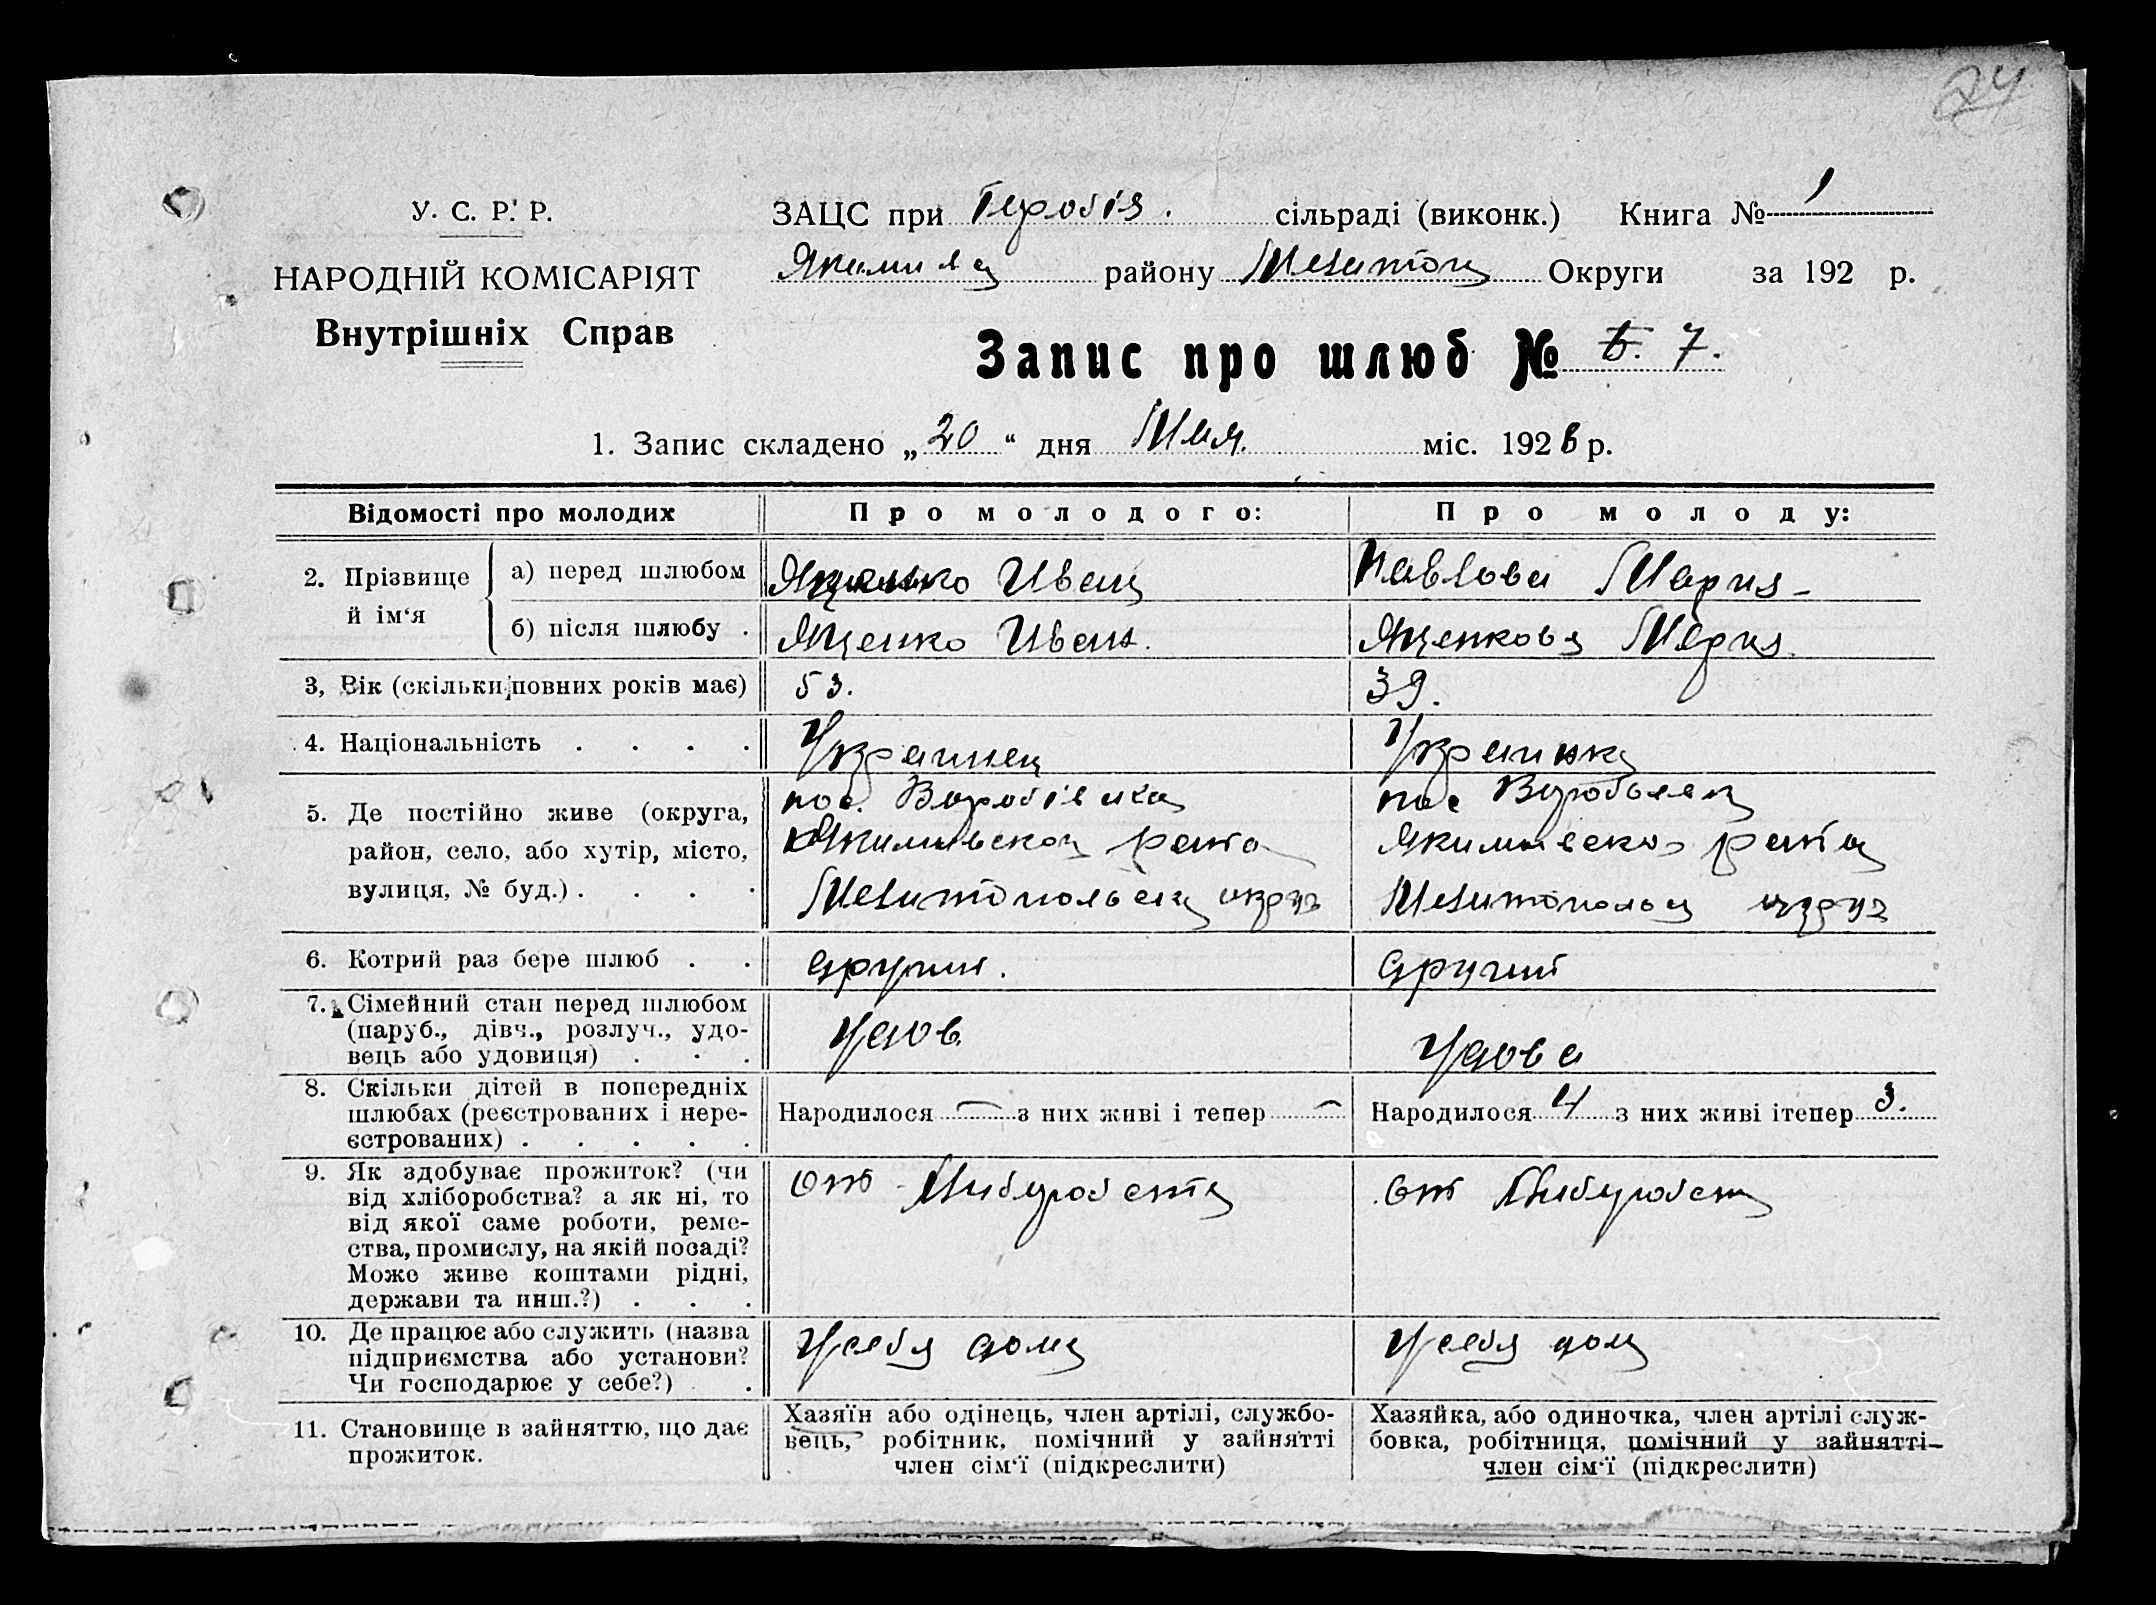 24
У. С. Р. Р.
НАРОДНІЙ КОМІСАРІЯТ
Внутрішніх Справ
ЗАЦС при сільраді (виконк.) Книга № 1
району Округи за 192 р.
Запис про шлюб № 7.
1. Запис складено „20“ дня Мая. міс. 192 р.
Відомості про молодих Про молодого: Про молоду:
2. Прізвище й ім‘я
а) перед шлюбом Иван Павлова Мария
б) після шлюбу . Яценко Иван. Яценкова Мария.
3, Вік (скільки повних років має) 53. 39.
4. Національність . . . . Украинец Украинка
5. Де постійно живе (округа,
район, село, або хутір, місто,
вулиця, № буд.) . . . .
пос.
Мелитопольск округ
пос
Мелитопольск округ
6. Котрий раз бере шлюб . . другий. другий
7. Сімейний стан перед шлюбом
(паруб., дівч., розлуч., удо-
вець або удовиця) . . .
Удов. Удова
8. Скільки дітей в попередніх
шлюбах (реєстрованих і нере-
єстрованих) . . . . .
Народилося — з них живі і тепер —
Народилося 4 з них живі ітепер 3.
9. Як здобуває прожиток? (чи
від хліборобства? а як ні, то
від якої саме роботи, реме-
ства, промислу, на якій посаді?
Може живе коштами рідні,
держави та инш.?) . . .
от Хлибуробства
от Хлибуробств
10. Де працює або служить (назва
підприємства або установи?
Чи господарює у себе?) .
У себя дома У себя дома
11. Становище в зайняттю, що дає
прожиток.
Хазяїн або одінець, член артілі, службо-
вець, робітник, помічний у зайнятті
член сім‘ї (підкреслити)
Хазяйка, або одиночка, член артілі служ-
бовка, робітниця, помічний у зайнятті
член сім‘ї (підкреслити)